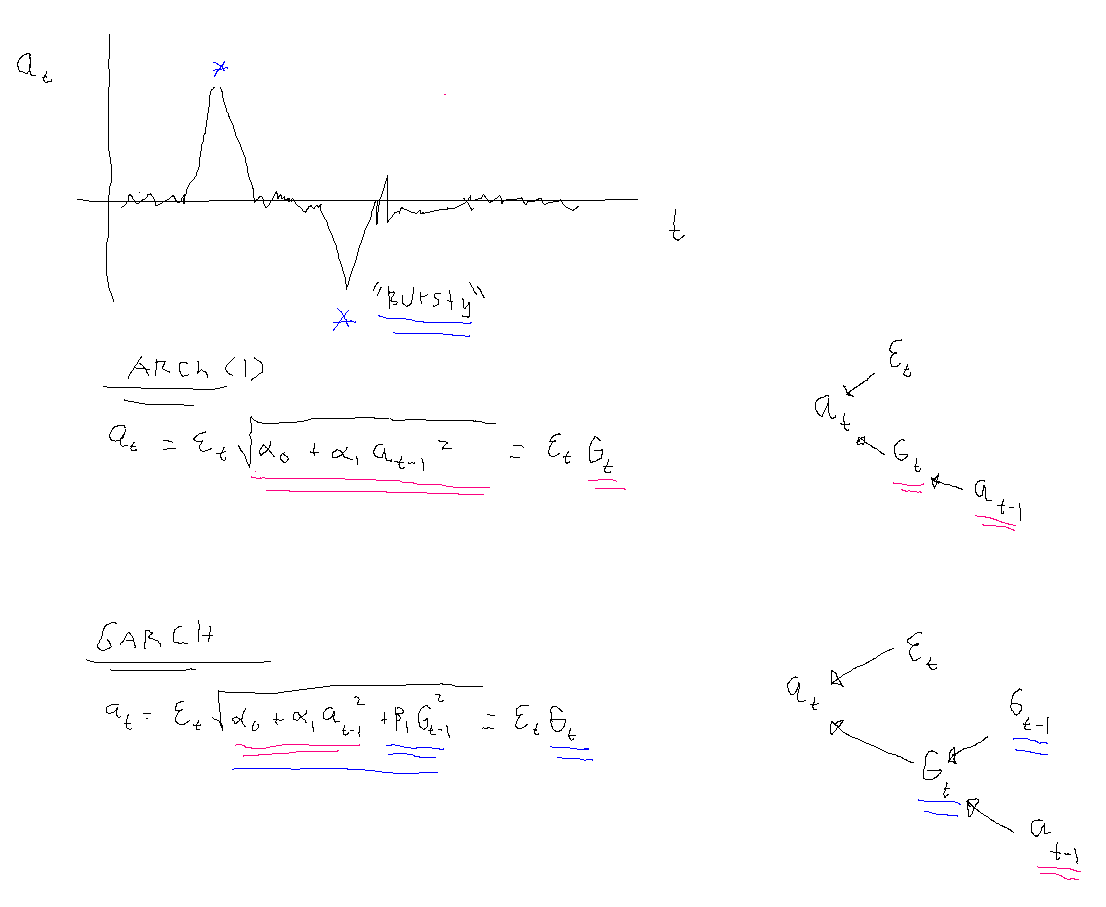 a_t
t
"Bursty"
ARCH (1)
a_t = ε_t √(α_0 + α_1 a_{t-1}^2) = ε_t σ_t
ε_t
a_t
σ_t
a_{t-1}
GARCH
a_t = ε_t √(α_0 + α_1 a_{t-1}^2 + β_1 σ_{t-1}^2) = ε_t σ_t
ε_t
a_t
σ_{t-1}
σ_t
a_{t-1}